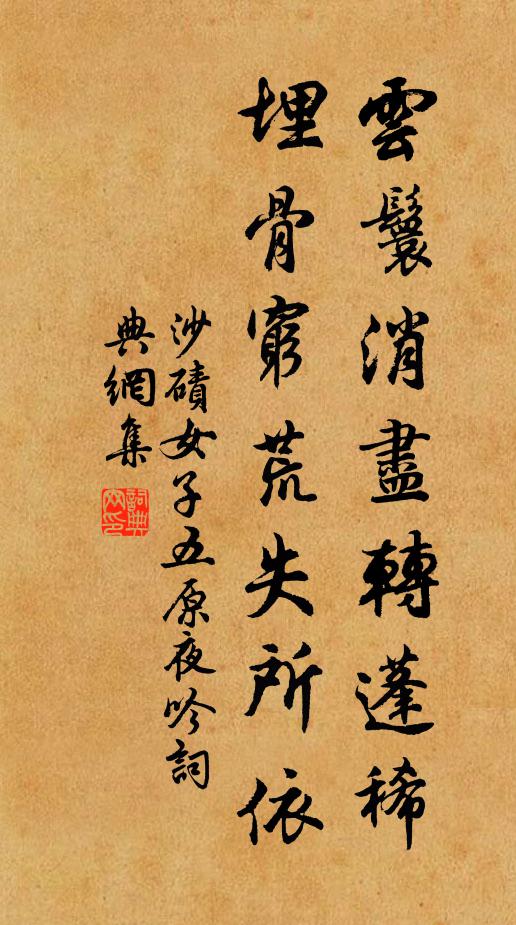 雲鬟消盡轉蓬稀
埋骨窮荒失所依
沙磧女子五原夜吟詞
典網集
詞典網印